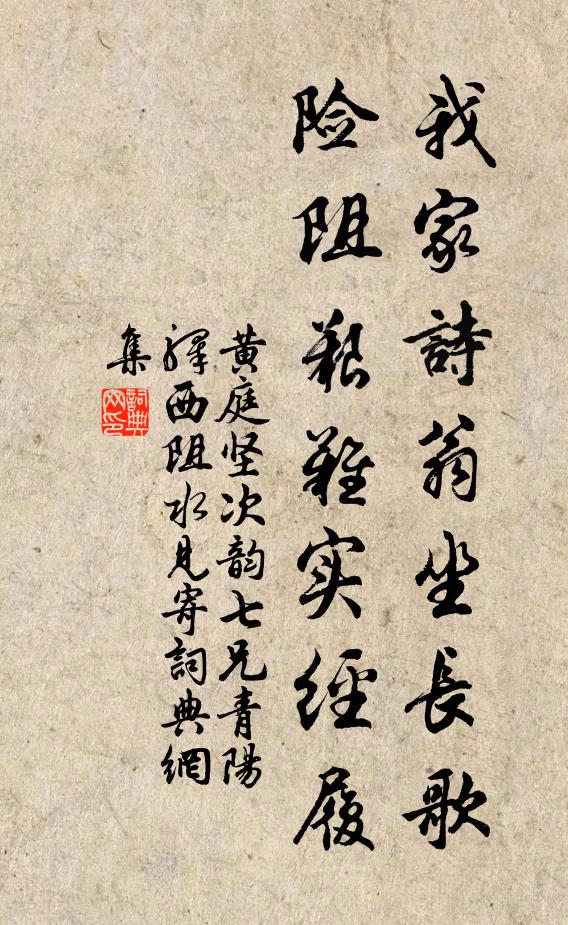 我家詩翁坐長歌
险阻艱難实經履
黄庭坚次韵七兄青陽
驛西阻水見寄詞典網
集
詞典網印